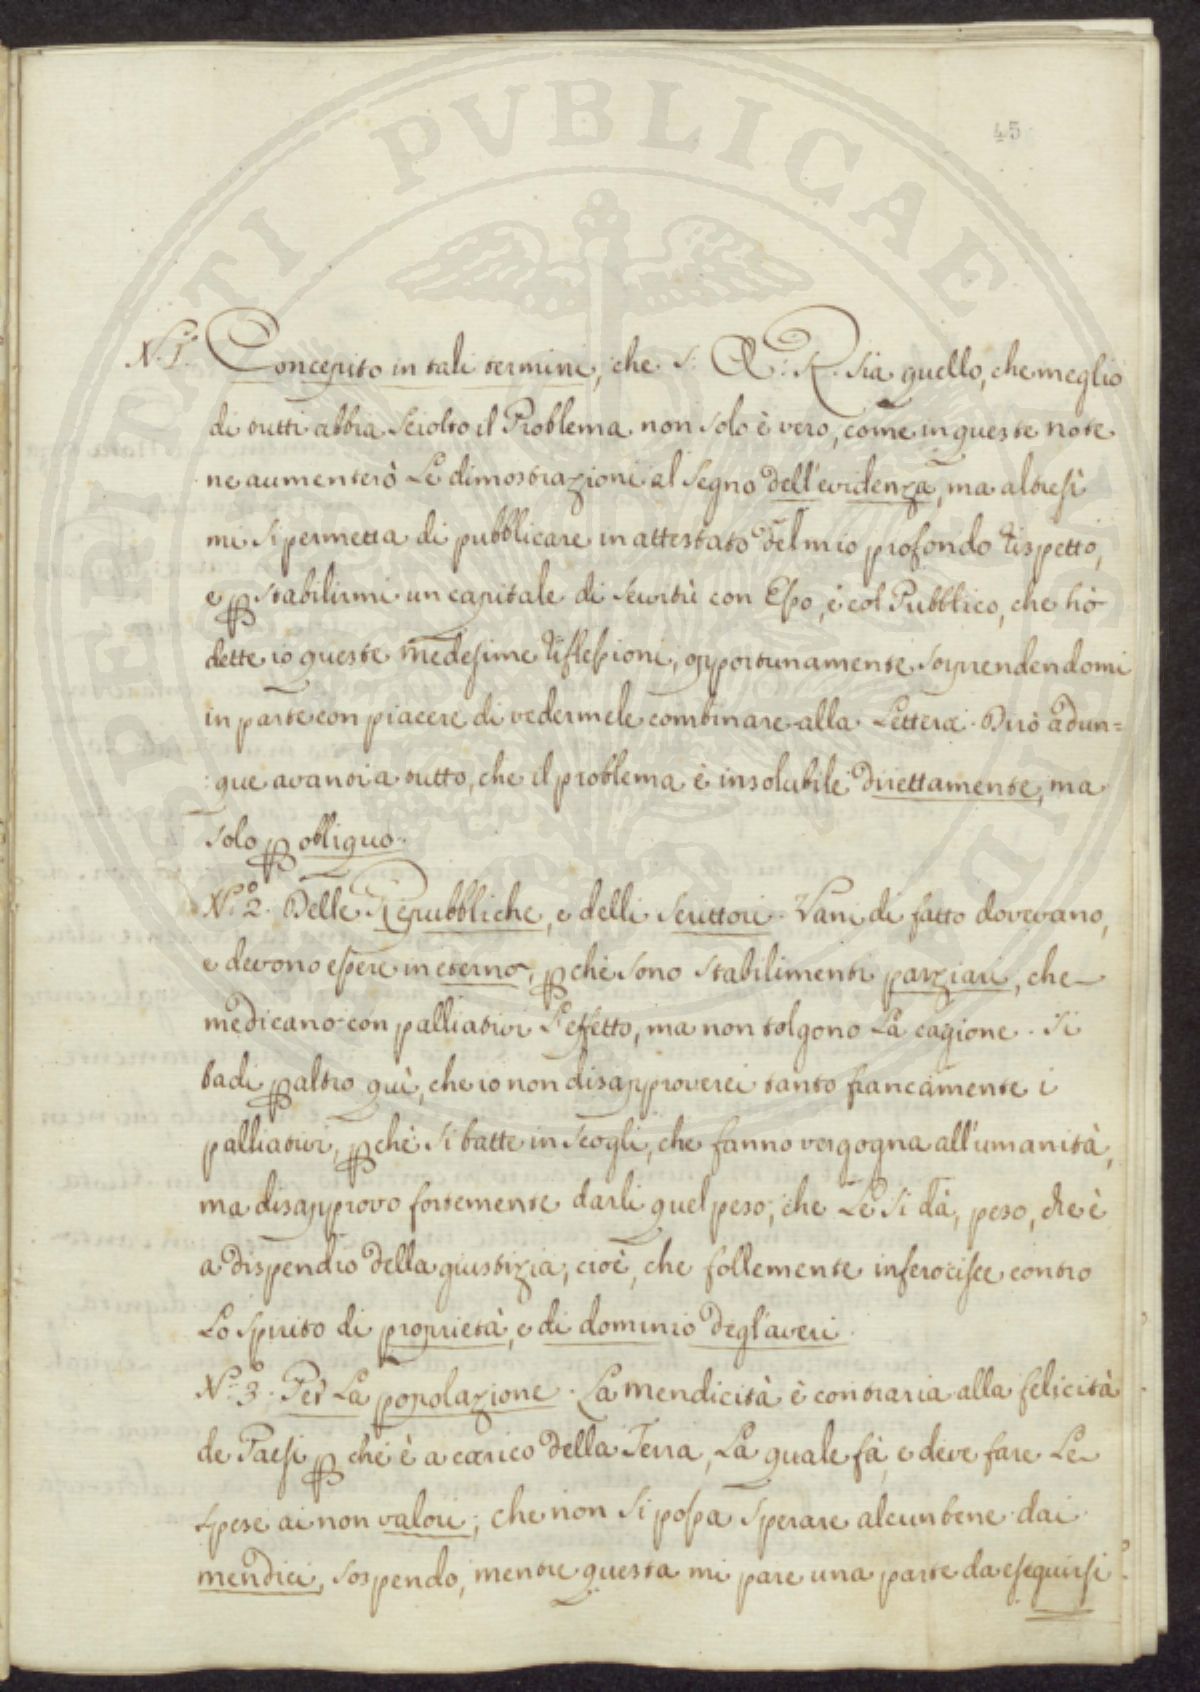 45
N. 1.° Concepito in tali termini, che S: A: R. sia quello, che meglio
di tutti abbia sciolto il Problema non solo è vero, come in queste note
ne aumenterò le dimostrazioni al segno dell'evidenza, ma altresì
mi si permetta di pubblicare in attestato del mio profondo rispetto,
e p stabilirmi un capitale di servitù con Esso, e col Pubblico, che hò
dette io queste medesime riflessioni, opportunamente sorprendendomi
in parte con piacere di vedermele combinare alla Lettera. Dirò adun=
:que avanti a tutto, che il problema è insolubile direttamente, ma
solo p obliquo.
N.° 2. Delle Repubbliche, e delli scrittori. Vani di fatto dovevano,
e devono essere in eterno, pchè sono stabilimenti parziari, che
medicano con palliativi l'effetto, ma non tolgono la cagione. Si
badi p altro quì, che io non disapproverei tanto francamente i
palliativi, pchè si batte in scogli, che fanno vergogna all'umanità,
ma disapprovo fortemente darli quel peso, che le si dà, peso, che è
a dispendio della giustizia, cioè, che follemente inferocisce contro
lo spirito di proprietà, e di dominio degl'averi.
N.° 3. Per la popolazione. La mendicità è contraria alla felicità
de Paesi p che è a carico della Terra, la quale fà, e deve fare le
spese ai non valori; che non si possa sperare alcun bene dai
mendici, sospendo, mentre questa mi pare una parte da eseguirsi
PVBLICAE